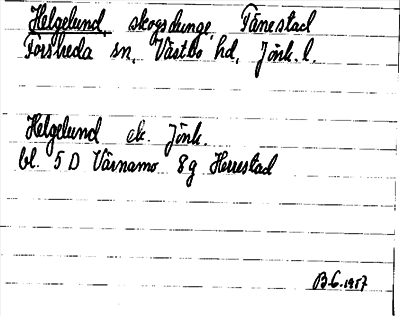 Helgelund, skogsdunge, Tånestad
Forsheda sn, Västbo hd, Jönk. l.
Helgelund ek. Jönk.
bl. 5 D Värnamo 8g Herrestad
B-G. 1957